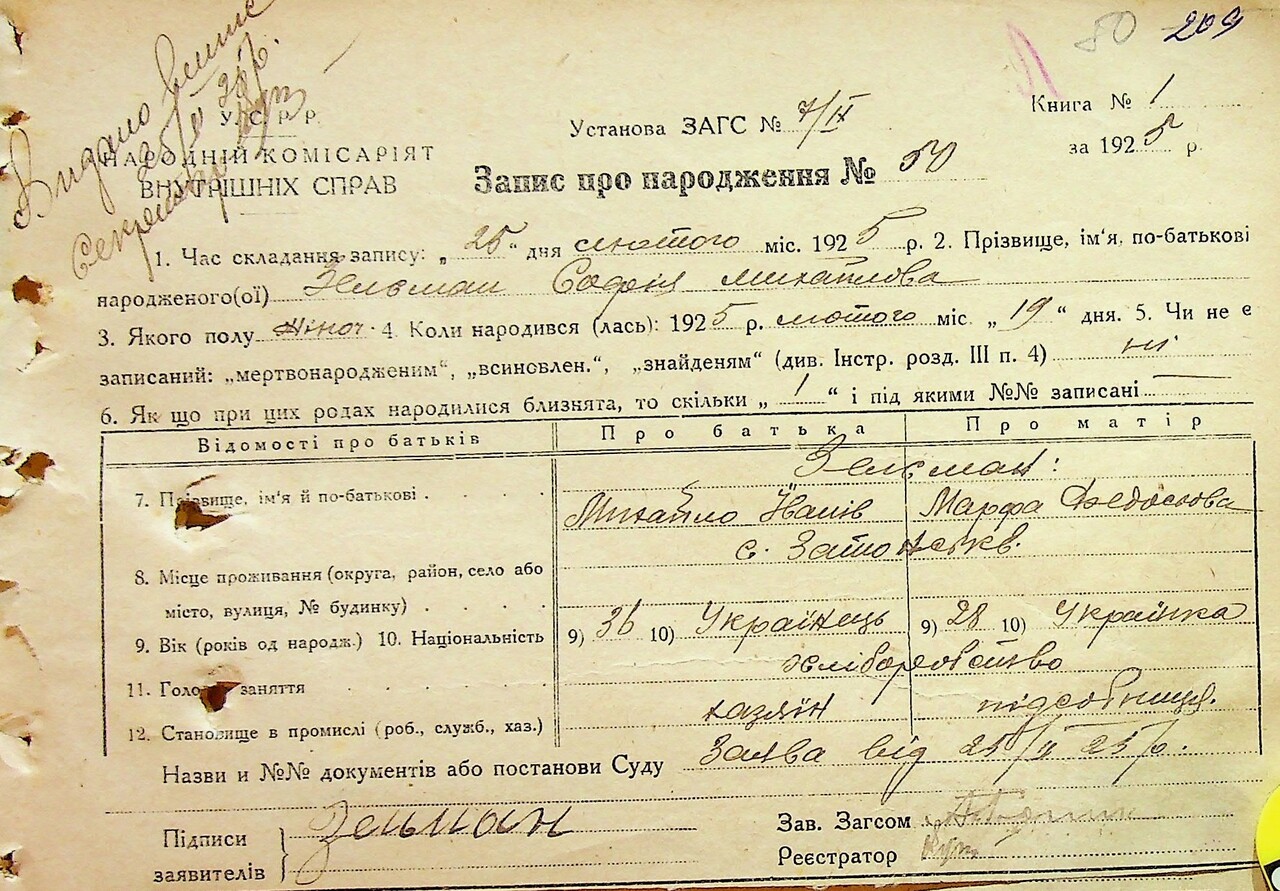 50 209
Видано
25/II 28 р.
Секретар
У. С. Р. Р.
НАРОДНІЙ КОМІСАРІЯТ
ВНУТРІШНІХ СПРАВ
Установа ЗАГС № 7/IX
Книга № 1
за 1925 р.
Запис про народження № 50
1. Час складання запису: „25“ дня лютого міс. 1925 р. 2. Прізвище, ім'я, по-батькові
народженого(ої) Зельман Софія Михайлова
3. Якого полу жіноч. 4. Коли народився (лась): 1925 р. лютого міс. „19“ дня. 5. Чи не є
записаний: „мертвонародженим“, „всиновлен.“, „знайденям“ (див. Інстр. розд. III п. 4) ні
6. Як що при цих родах народилися близнята, то скільки „1“ і під якими №№ записані —
Відомості про батьків Про батька Про матір
Зельман:
7. Прізвище, ім'я й по-батькові Михайло Марфа Федосіова
с.
8. Місце проживання (округа, район, село або
місто, вулиця, № будинку)
9. Вік (років од народж.) 10. Національність 9) 36 10) Українець 9) 28 10) Українка
11. Голов заняття хліборобство
12. Становище в промислі (роб., служб., хаз.) хазяїн підсобниця.
Назви и №№ документів або постанови Суду Заява від 25/II 25 р.
Підписи
заявителів
Зельман
Зав. Загсом
Реєстратор